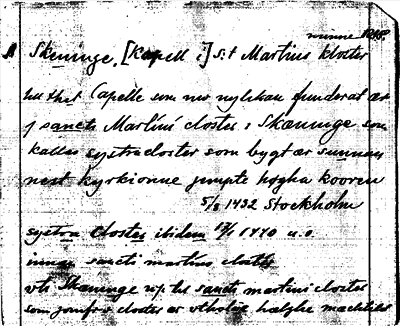 Skeninge, [Kapell i] S:t Martins kloster
till thet Capelle som nw nylikan funderat är
j sancti Martini closter i Skæninge som
kallas systracloster som bygt är sunnan
næst kyrkionne jempte högha kooren
5/8 1432 Stockholm
systra closter ibidem 1440 u.o.
innan sancti martins closter
vti Skæninge sancti martini closter
som jomfrv closter är